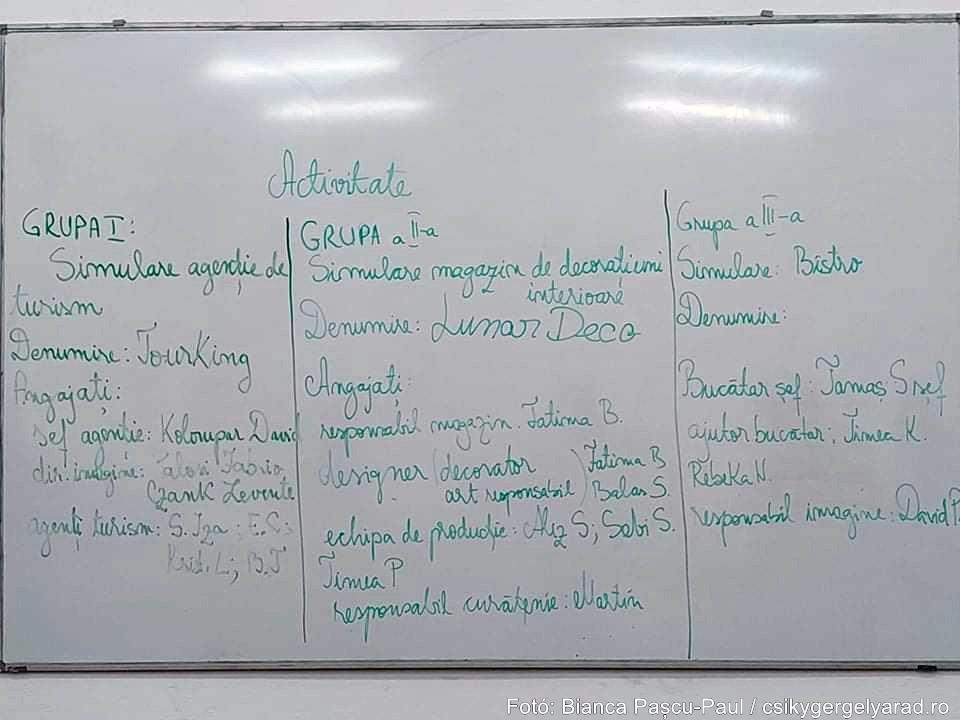 Activitate
GRUPA I:
Simulare agenție de
turism
Denumire: TourKing
Angajați:
șef agenție: Kolompar David
dir. imagine: Fabrio,
Czank Levente
agenți turism: S. Iza; E.C;
Krist. L; B.T
GRUPA a II-a
Simulare magazin de decorațiuni
interioare
Denumire: Lunar Deco
Angajați:
responsabil magazin: Fatima B.
designer (decorator
art responsabil) Fatima B
Balas S.
echipa de producție: Aliz S; Sabi S.
Timea P
responsabil curățenie: Martin
Grupa a III-a
Simulare: Bistro
Denumire:
Bucătar șef: Tamaș S șef
ajutor bucătar: Timea K.
Rebeka N.
responsabil imagine: David P.
Fotó: Bianca Pașcu-Paul / csikygergelyarad.ro